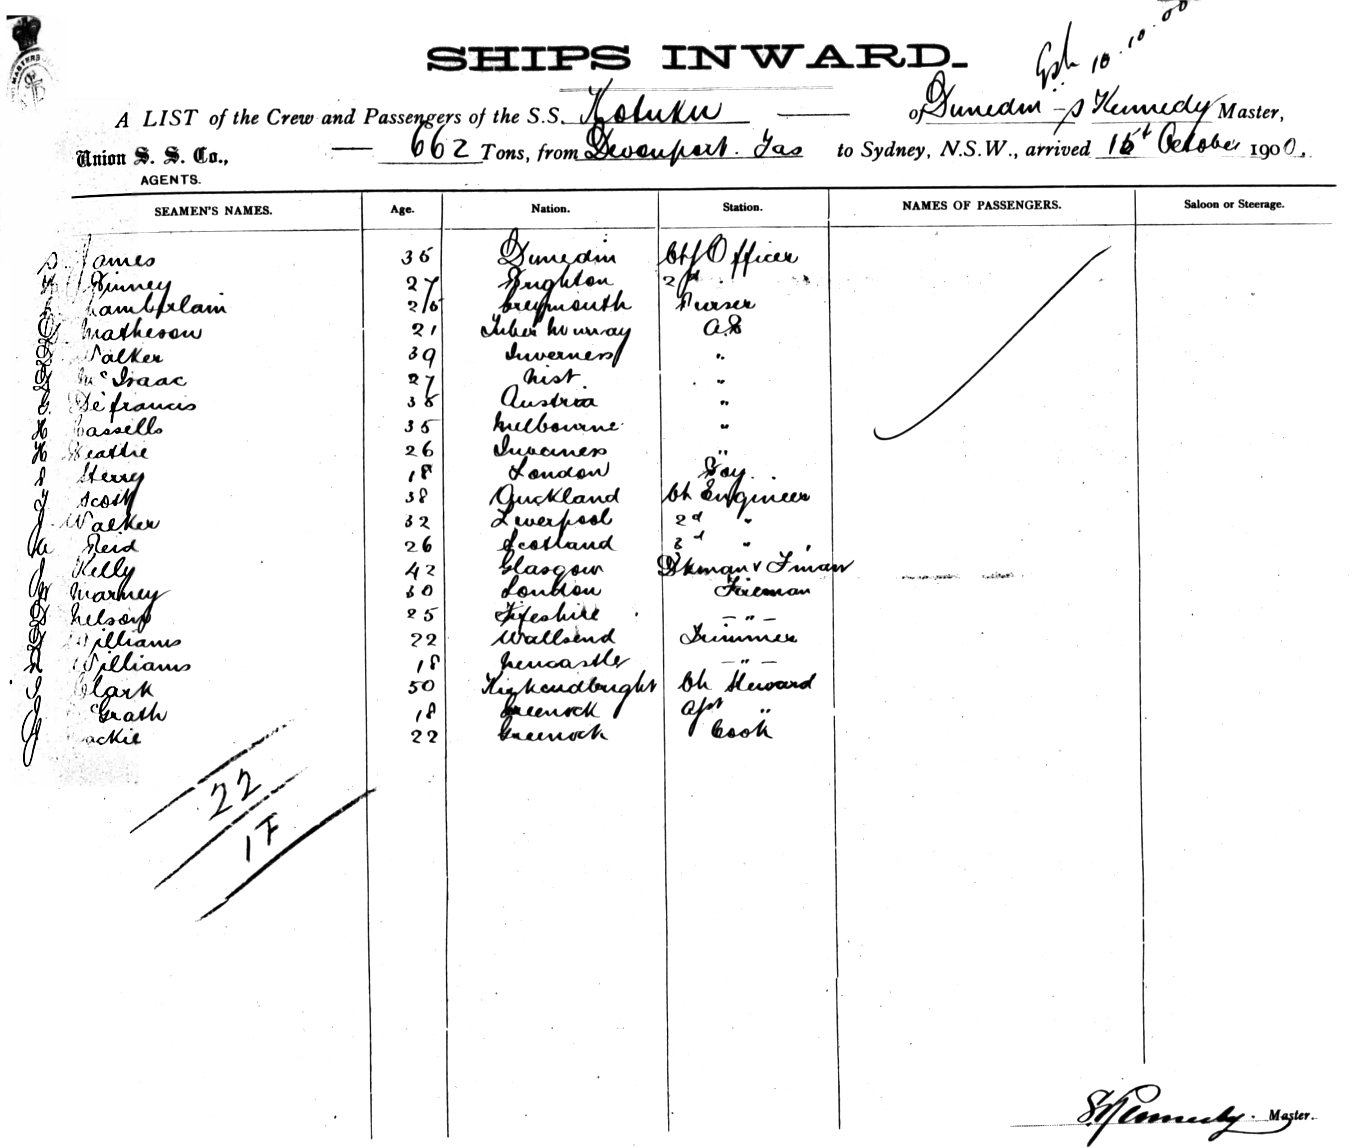 SHIPS INWARD.
10.10.00
A LIST of the Crew and Passengers of the S.S. Kotuku of Dunedin S Kennedy Master,
Union S. S. Co., 662 Tons, from Devonport. Tas to Sydney, N.S.W., arrived October 1900.
AGENTS.
SEAMEN'S NAMES. Age. Nation. Station. NAMES OF PASSENGERS. Saloon or Steerage.
James 35 Dunedin Chf Officer
Finney 27 Brighton 2nd "
Chamberlain Greymouth Purser
Matheson 21 Murray A.B
Walker 39 Inverness "
McIsaac 27 "
De francis 38 Austria "
Cassells 35 Melbourne "
Beattie 26 Inverness "
Sterry 18 London Boy
Scott 38 Auckland Ch Engineer
Walker 32 Liverpool 2d "
Reid 26 Scotland 3d "
Kelly 42 Glasgow Dkman & F'man
Marney 30 London Fireman
Nelson 25 Fifeshire - " -
Williams 22 Wallsend Trimmer
Williams 18 Newcastle - " -
Clark 50 Kirkcudbright Ch Steward
McGrath 18 Greenock "
Mackie 22 Greenock Cook
22
17
S Kennedy. Master.